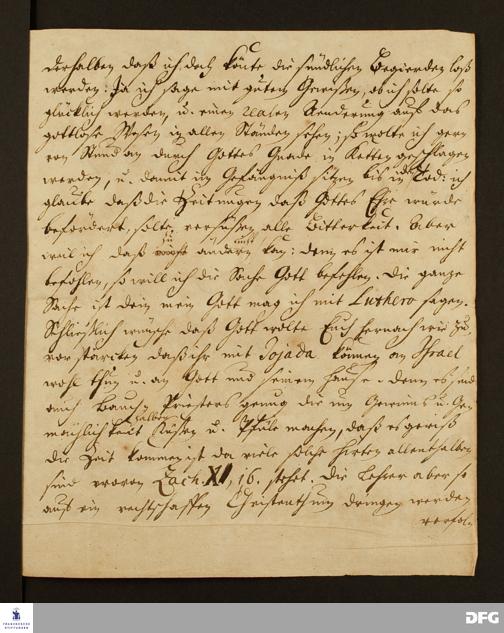 derhalben daß ich doch könte die sündlichen Begierden loß
werden: Ja ich sage mit gutem Gewissen, ob ich solte so
glücklich werden, u. einen Aenderung auf das
gottlose Wesen in allen Ständen sehen; so wolte ich gern
von Stund an durch Gottes Gnade in Ketten geschlagen
werden, u. damit im Gefängniß sitzen bis in Tod: ich
glaube daß die Zeitungen daß Gottes Ehre würde
befördert, solte versüßen alle Bitterkeit. Aber
weil ich daß nicht ändern kan: denn es ist mir nicht
befohlen, so will ich die Sache Gott befehlen. Die ganze
Sache ist dein mein Gott mag ich mit Luthero sagen.
Schließlich wünsche daß Gott wolte Euch hernach wie zu
vor stärcken daß ihr mit Jojada können an Israel
wohl thun u. an Gott und seinem Hause. denn es sind
auch Bauch Priesters genug die um Gewinns u. Gem
mächlichkeit Küssen u. Pfüle machen, daß es gewiß
die Zeit kommen ist da viele solche Hirten allenthalben
sind wovon Zach. XI, 16. stehet. Die Lehrer aber so
auf ein rechtschaffen Christenthum dringen werden
verfol-
FRANCKESCHE
STIFTUNGEN
DFG